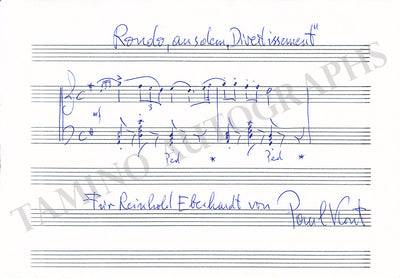 Rondo, aus dem „Divertissement“
mf
3
Ped * Ped *
Für Reinhold Eberhardt von Paul Kont
TAMINO AUTOGRAPHS